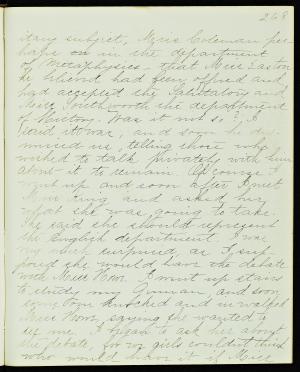 268
itary subject, Myra Coleman per-
haps on in the department
of Metaphysics - that Miss Easton
he believed had been offered and
had accepted the Salutatory and
Miss Southworth the department
of History. Was it not so? I
said it was, and soon he dis-
missed us, telling those who
wished to talk privately with him
about it to remain. Of course I
went up and soon after I met
Miss King and asked her
what she was going to take.
She said she should represent
the English department. I was
very much surprised as I sup-
posed she would have the debate
with Miss How. I went up stairs
to study my German, and soon
some one knocked and in walked
Miss How, saying she wanted to
see me. I began to ask her about
the debate, for we girls couldn't think
who would have it if Miss